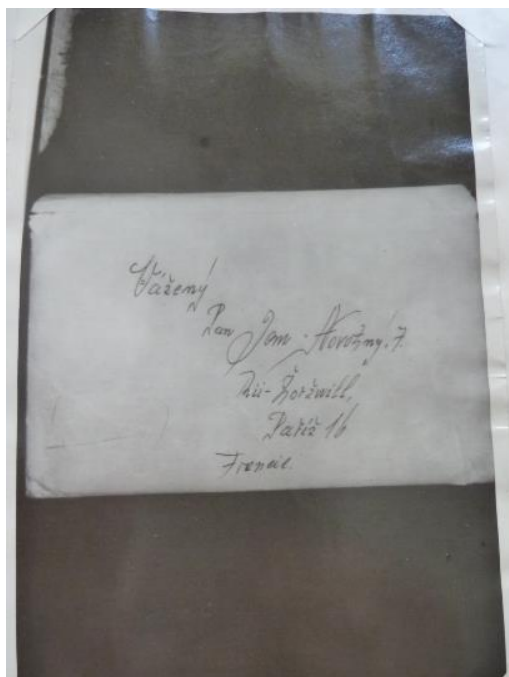 Vážený
Pan Jan Novotný. 7.
Rü- Žoržvill,
Paříž 16
Francie.